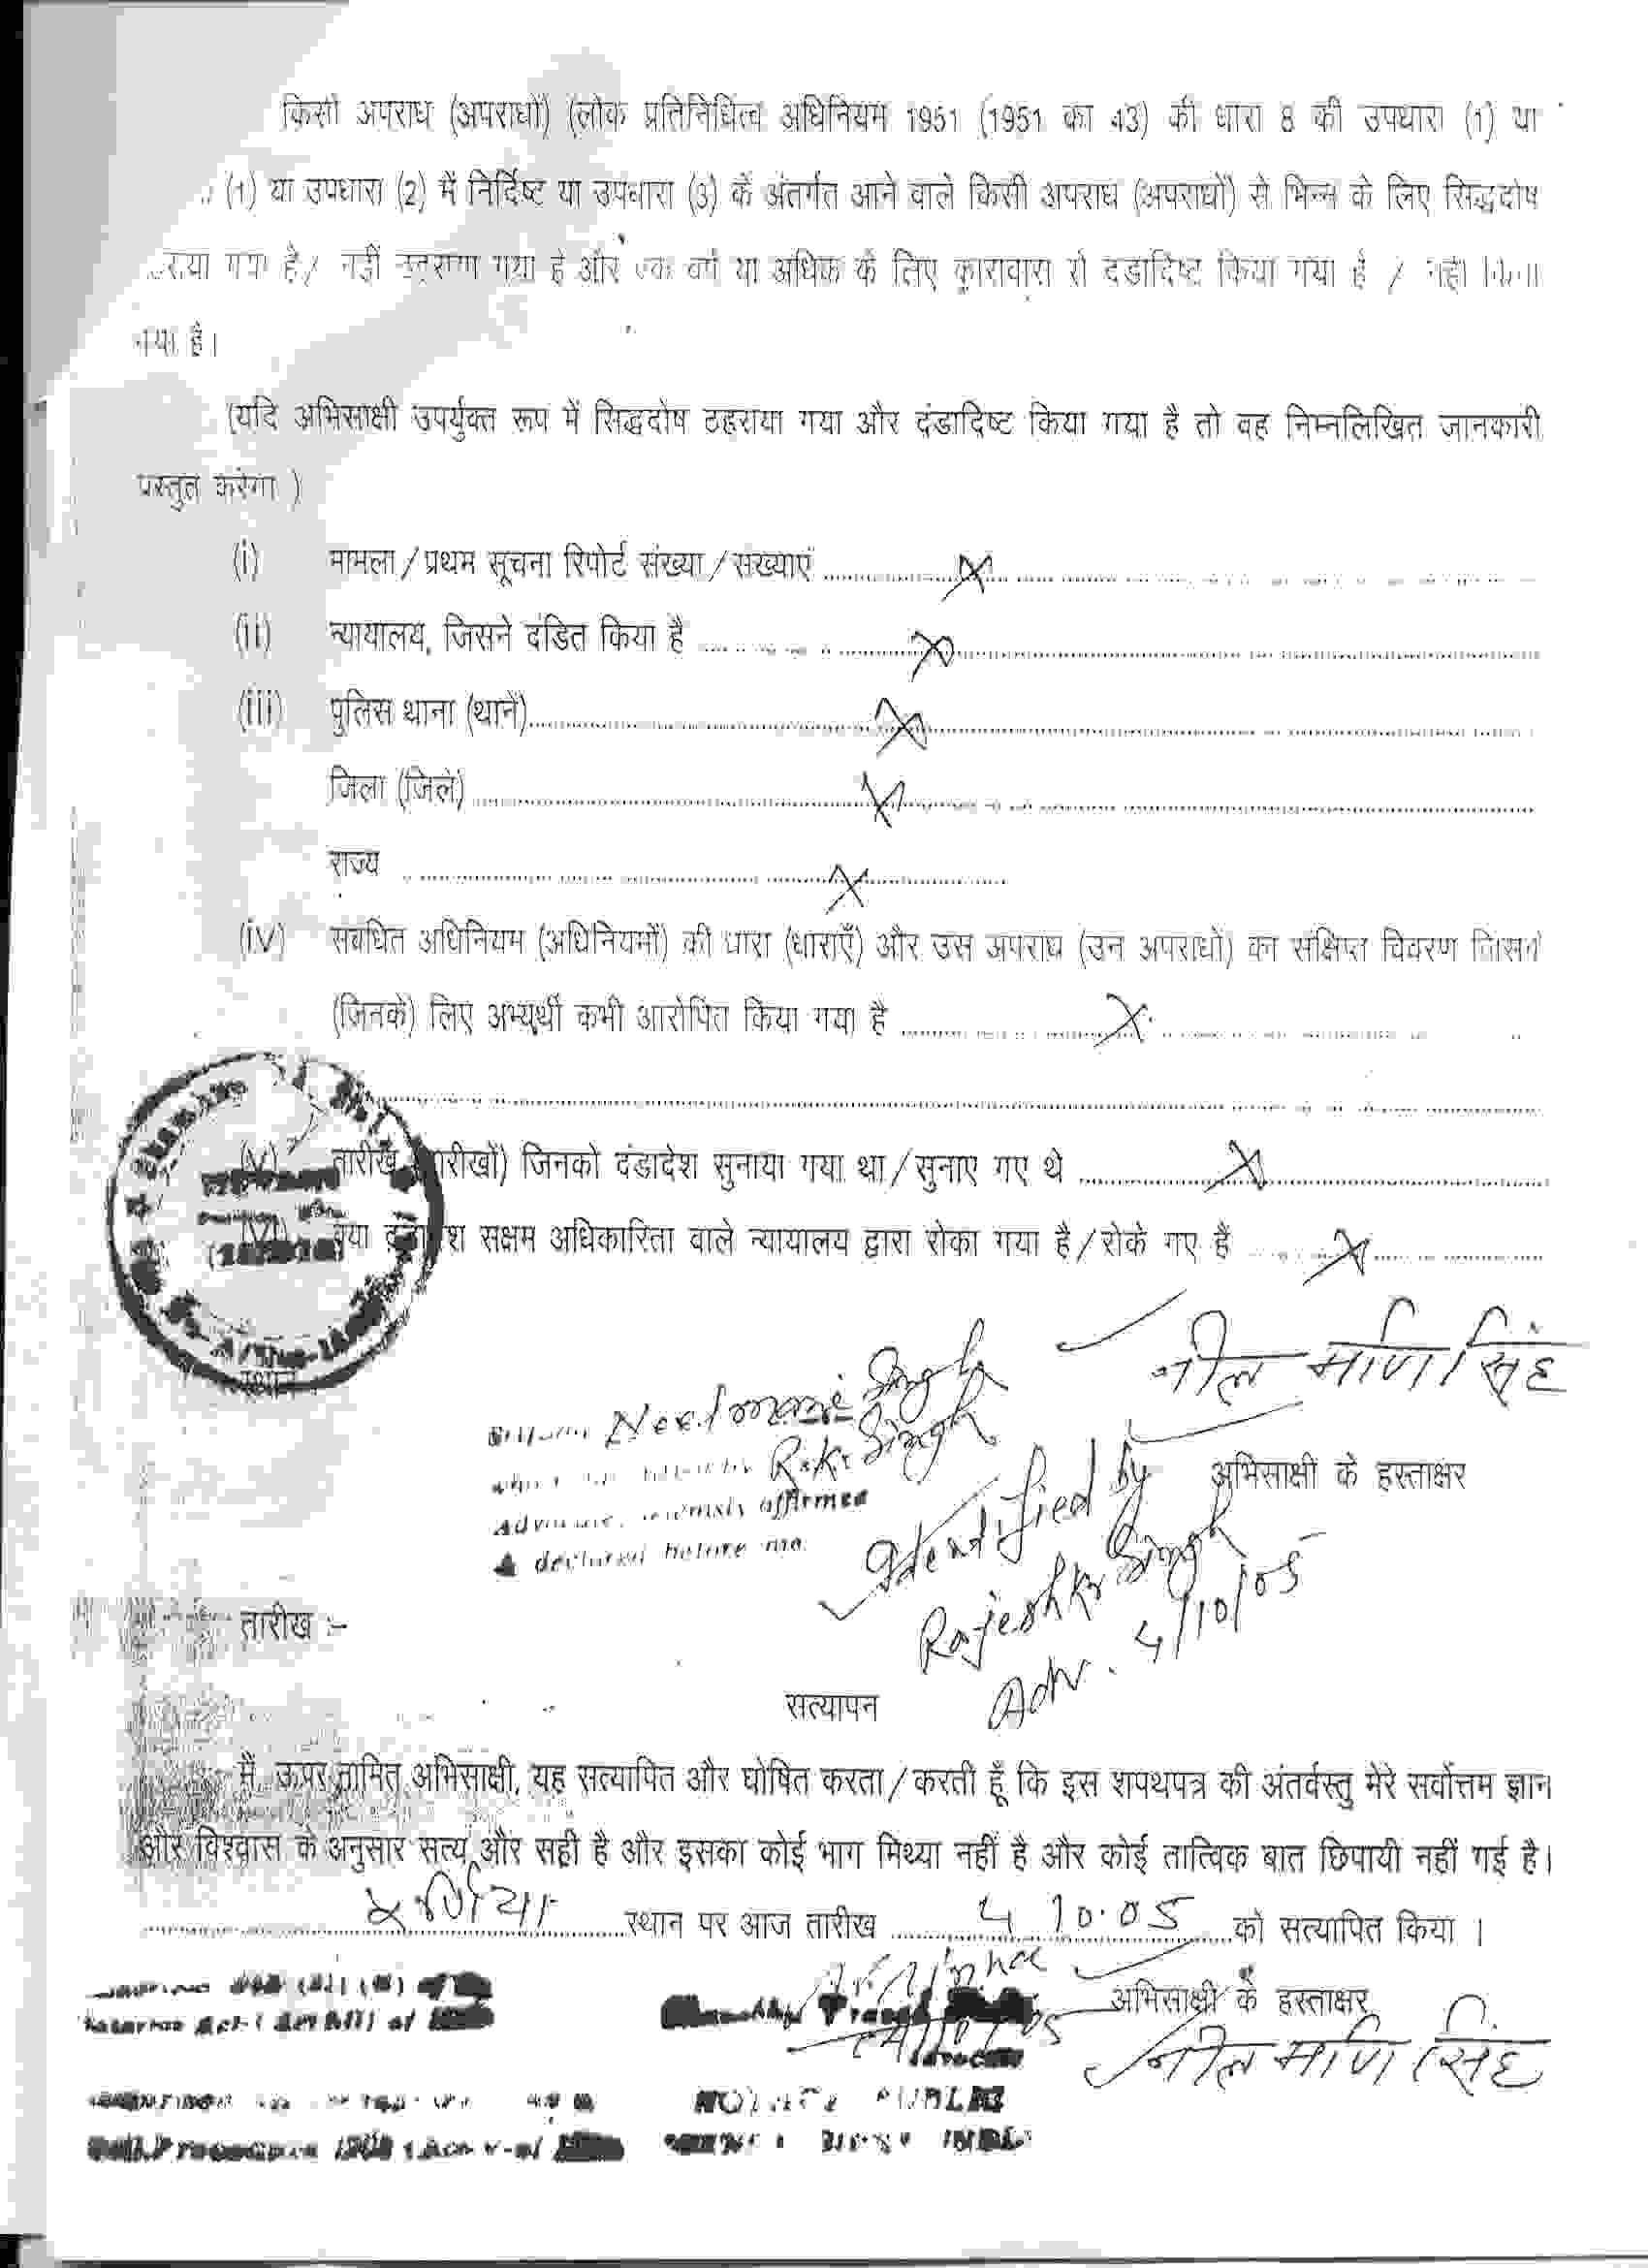 किसी अपराध (अपराधों) (लोक प्रतिनिधित्व अधिनियम 1951 (1951 का 43) की धारा 8 की उपधारा (1) या
(1) या उपधारा (2) में निर्दिष्ट या उपधारा (3) के अंतर्गत आने वाले किसी अपराध (अपराधों) से भिन्न के लिए सिद्धदोष
गया है / नहीं ठहराया गया है और एक वर्ष या अधिक के लिए कारावास से दंडादिष्ट किया गया है / नहीं किया
गया है।
(यदि अभिसाक्षी उपर्युक्त रूप में सिद्धदोष ठहराया गया और दंडादिष्ट किया गया है तो वह निम्नलिखित जानकारी
प्रस्तुत करेगा )
(i) मामला/प्रथम सूचना रिपोर्ट संख्या/संख्याएं ........ X ........
(ii) न्यायालय, जिसने दंडित किया है ........ X ........
(iii) पुलिस थाना (थानें) ........ X ........
जिला (जिले) ........ X ........
राज्य ........ X ........
(iv) संबंधित अधिनियम (अधिनियमों) की धारा (धाराएँ) और उस अपराध (उन अपराधों) का संक्षिप्त विवरण जिसके
(जिनके) लिए अभ्यर्थी कभी आरोपित किया गया है ........ X ........
(v) तारीख (तारीखों) जिनको दंडादेश सुनाया गया था/सुनाए गए थे ........ X ........
(vi) क्या दंडादेश सक्षम अधिकारिता वाले न्यायालय द्वारा रोका गया है/रोके गए हैं ........ X ........
नील मणि सिंह
स्थान
Neelmani Singh
R.Kr. Singh
अभिसाक्षी के हस्ताक्षर
Advocate, solemnly affirmed
& declared before me.
Identified by
Rajesh Kr Singh
Adv. 4/10/05
तारीख :-
सत्यापन
मैं, ऊपर नामित अभिसाक्षी, यह सत्यापित और घोषित करता/करती हूँ कि इस शपथपत्र की अंतर्वस्तु मेरे सर्वोत्तम ज्ञान
और विश्वास के अनुसार सत्य और सही है और इसका कोई भाग मिथ्या नहीं है और कोई तात्विक बात छिपायी नहीं गई है।
........ स्थान पर आज तारीख ........ 4 10.05 ........ को सत्यापित किया ।
अभिसाक्षी के हस्ताक्षर
नील मणि सिंह
NOTARY PUBLIC